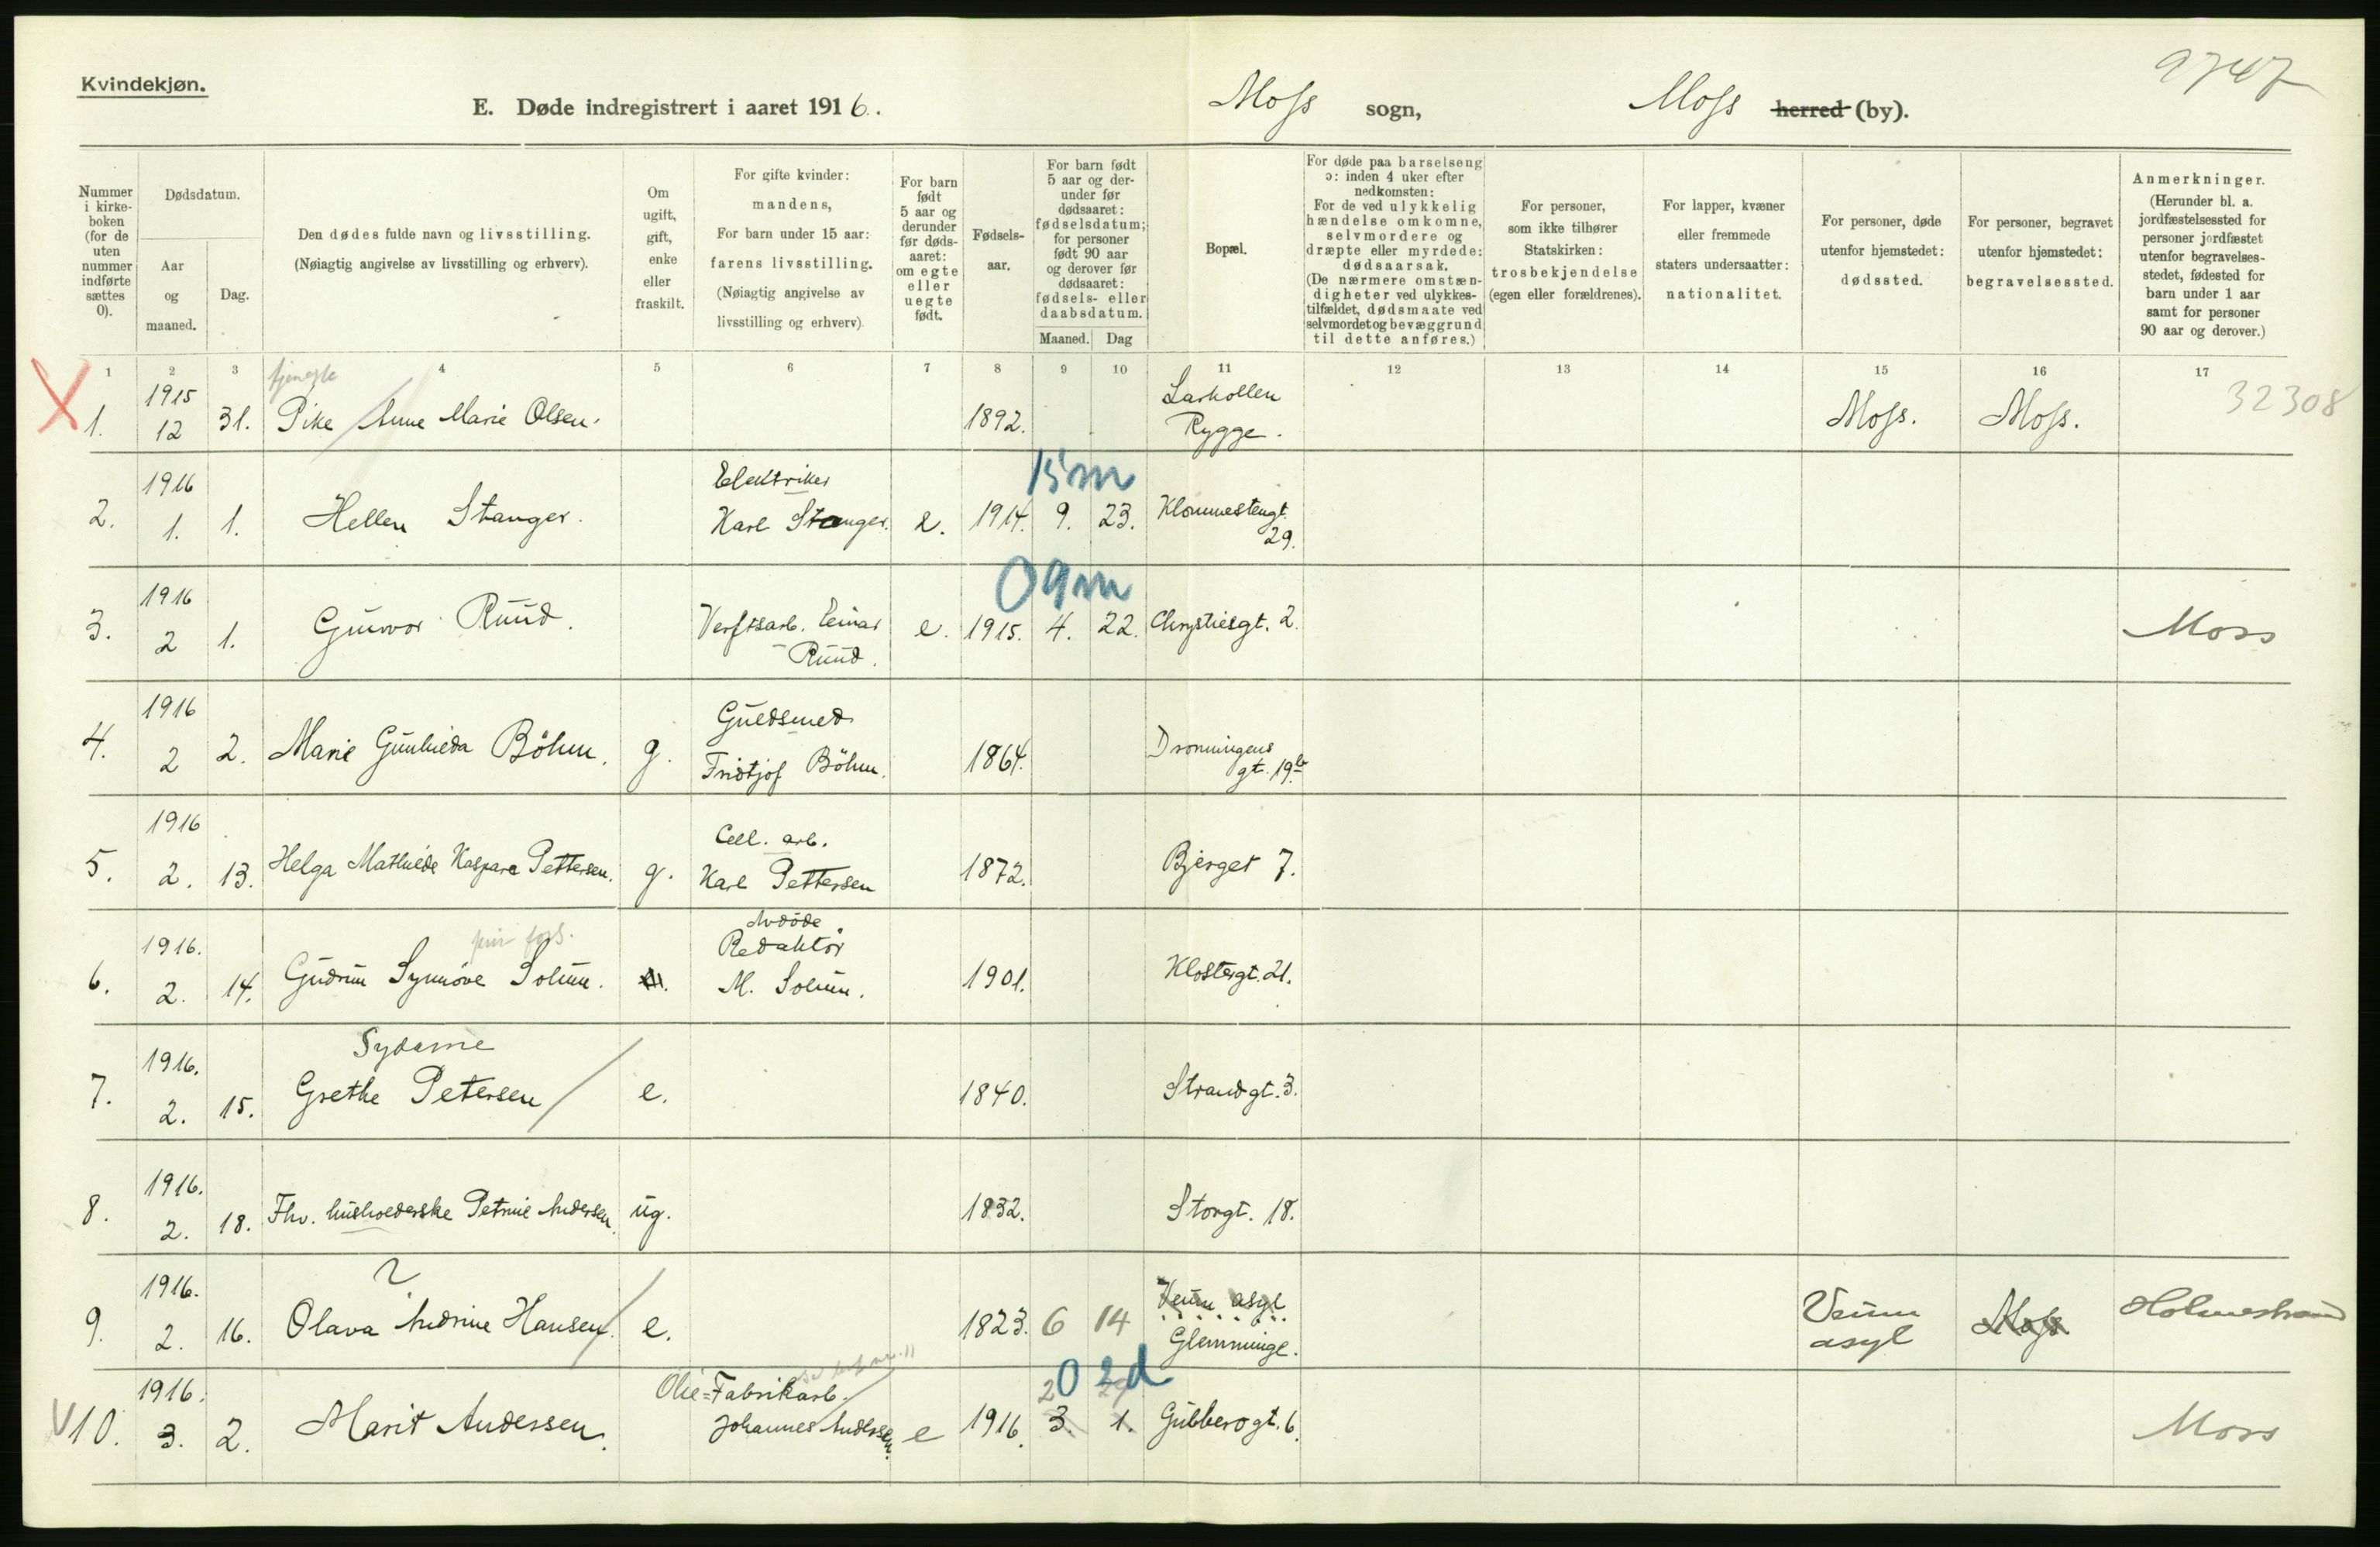 Kvindekjøn.
9747
E. Døde indregistrert i aaret 1916. Moss sogn, Moss herred (by).
Nummer i kirke-boken (for de uten nummer indførte sættes 0).
Dødsdatum.
Aar og maaned.
Dag.
Den dødes fulde navn og livsstilling.
(Nøiagtig angivelse av livsstilling og erhverv).
Om ugift, gift, enke eller fraskilt.
For gifte kvinder: mandens,
For barn under 15 aar: farens livsstilling.
(Nøiagtig angivelse av livsstilling og erhverv)
For barn født 5 aar og derunder før døds-aaret: om egte eller uegte født.
Fødsels-aar.
For barn født 5 aar og der-under før dødsaaret: fødselsdatum; for personer født 90 aar og derover før dødsaaret: fødsels- eller daabsdatum.
Maaned. Dag
Bopæl.
For døde paa barselseng ɔ: inden 4 uker efter nedkomsten:
For de ved ulykkelig hændelse omkomne, selvmordere og dræpte eller myrdede: dødsaarsak.
(De nærmere omstæn-digheter ved ulykkes-tilfældet, dødsmaate ved selvmordet og bevæggrund til dette anføres.)
For personer, som ikke tilhører Statskirken: trosbekjendelse (egen eller forældrenes).
For lapper, kvæner eller fremmede staters undersaatter: nationalitet.
For personer, døde utenfor hjemstedet: dødssted.
For personer, begravet utenfor hjemstedet: begravelsessted.
Anmerkninger.
(Herunder bl. a. jordfæstelsessted for personer jordfæstet utenfor begravelses-stedet, fødested for barn under 1 aar samt for personer 90 aar og derover.)
1 2 3 4 5 6 7 8 9 10 11 12 13 14 15 16 17
X 1. 1915 12 31. tjeneste Pike Anne Marie Olsen. 1892. Larkollen Rygge. Moss. Moss. 32308
2. 1916 1. 1. Hellen Stanger. Elektriker Karl Stanger. e. 1914. 9. 23. 15 m Klommestengt. 29.
3. 1916 2 1. Gunvor Ruud. Verftsarb. Einar Ruud. e. 1915. 4. 22. 0 9 m Chrystiesgt. 2. Moss
4. 1916 2 2. Marie Gunhilda Böhm. g. Guldsmed Fridtjof Böhm. 1864. Dronningens gt. 19 b
5. 1916 2. 13. Helga Mathilde Kaspara Pettersen. g. Cell. arb. Karl Pettersen 1872. Bjerget 7.
6. 1916. 2. 14. Gudrun Synnöve Solum. Avdöde Redaktör M. Solum. 1901. Klostergt. 21.
7. 1916. 2. 15. Sydame Grethe Petersen e. 1840. Strandgt. 3.
8. 1916. 2. 18. Fhv. husholderske Petrine Andersen. ug. 1832. Storgt. 18.
9. 1916. 2. 16. ? Olava Andrine Hansen e. 1823. 6 14 Veum asyl Glemminge. Veum asyl Moss Holmestrand
V 10. 1916. 3. 2. Marit Anderssen. Olie=Fabrikarb. Johannes Anderssen. e 1916. 3. 1. 2 29 0 2 d Gubberogt. 6. Moss